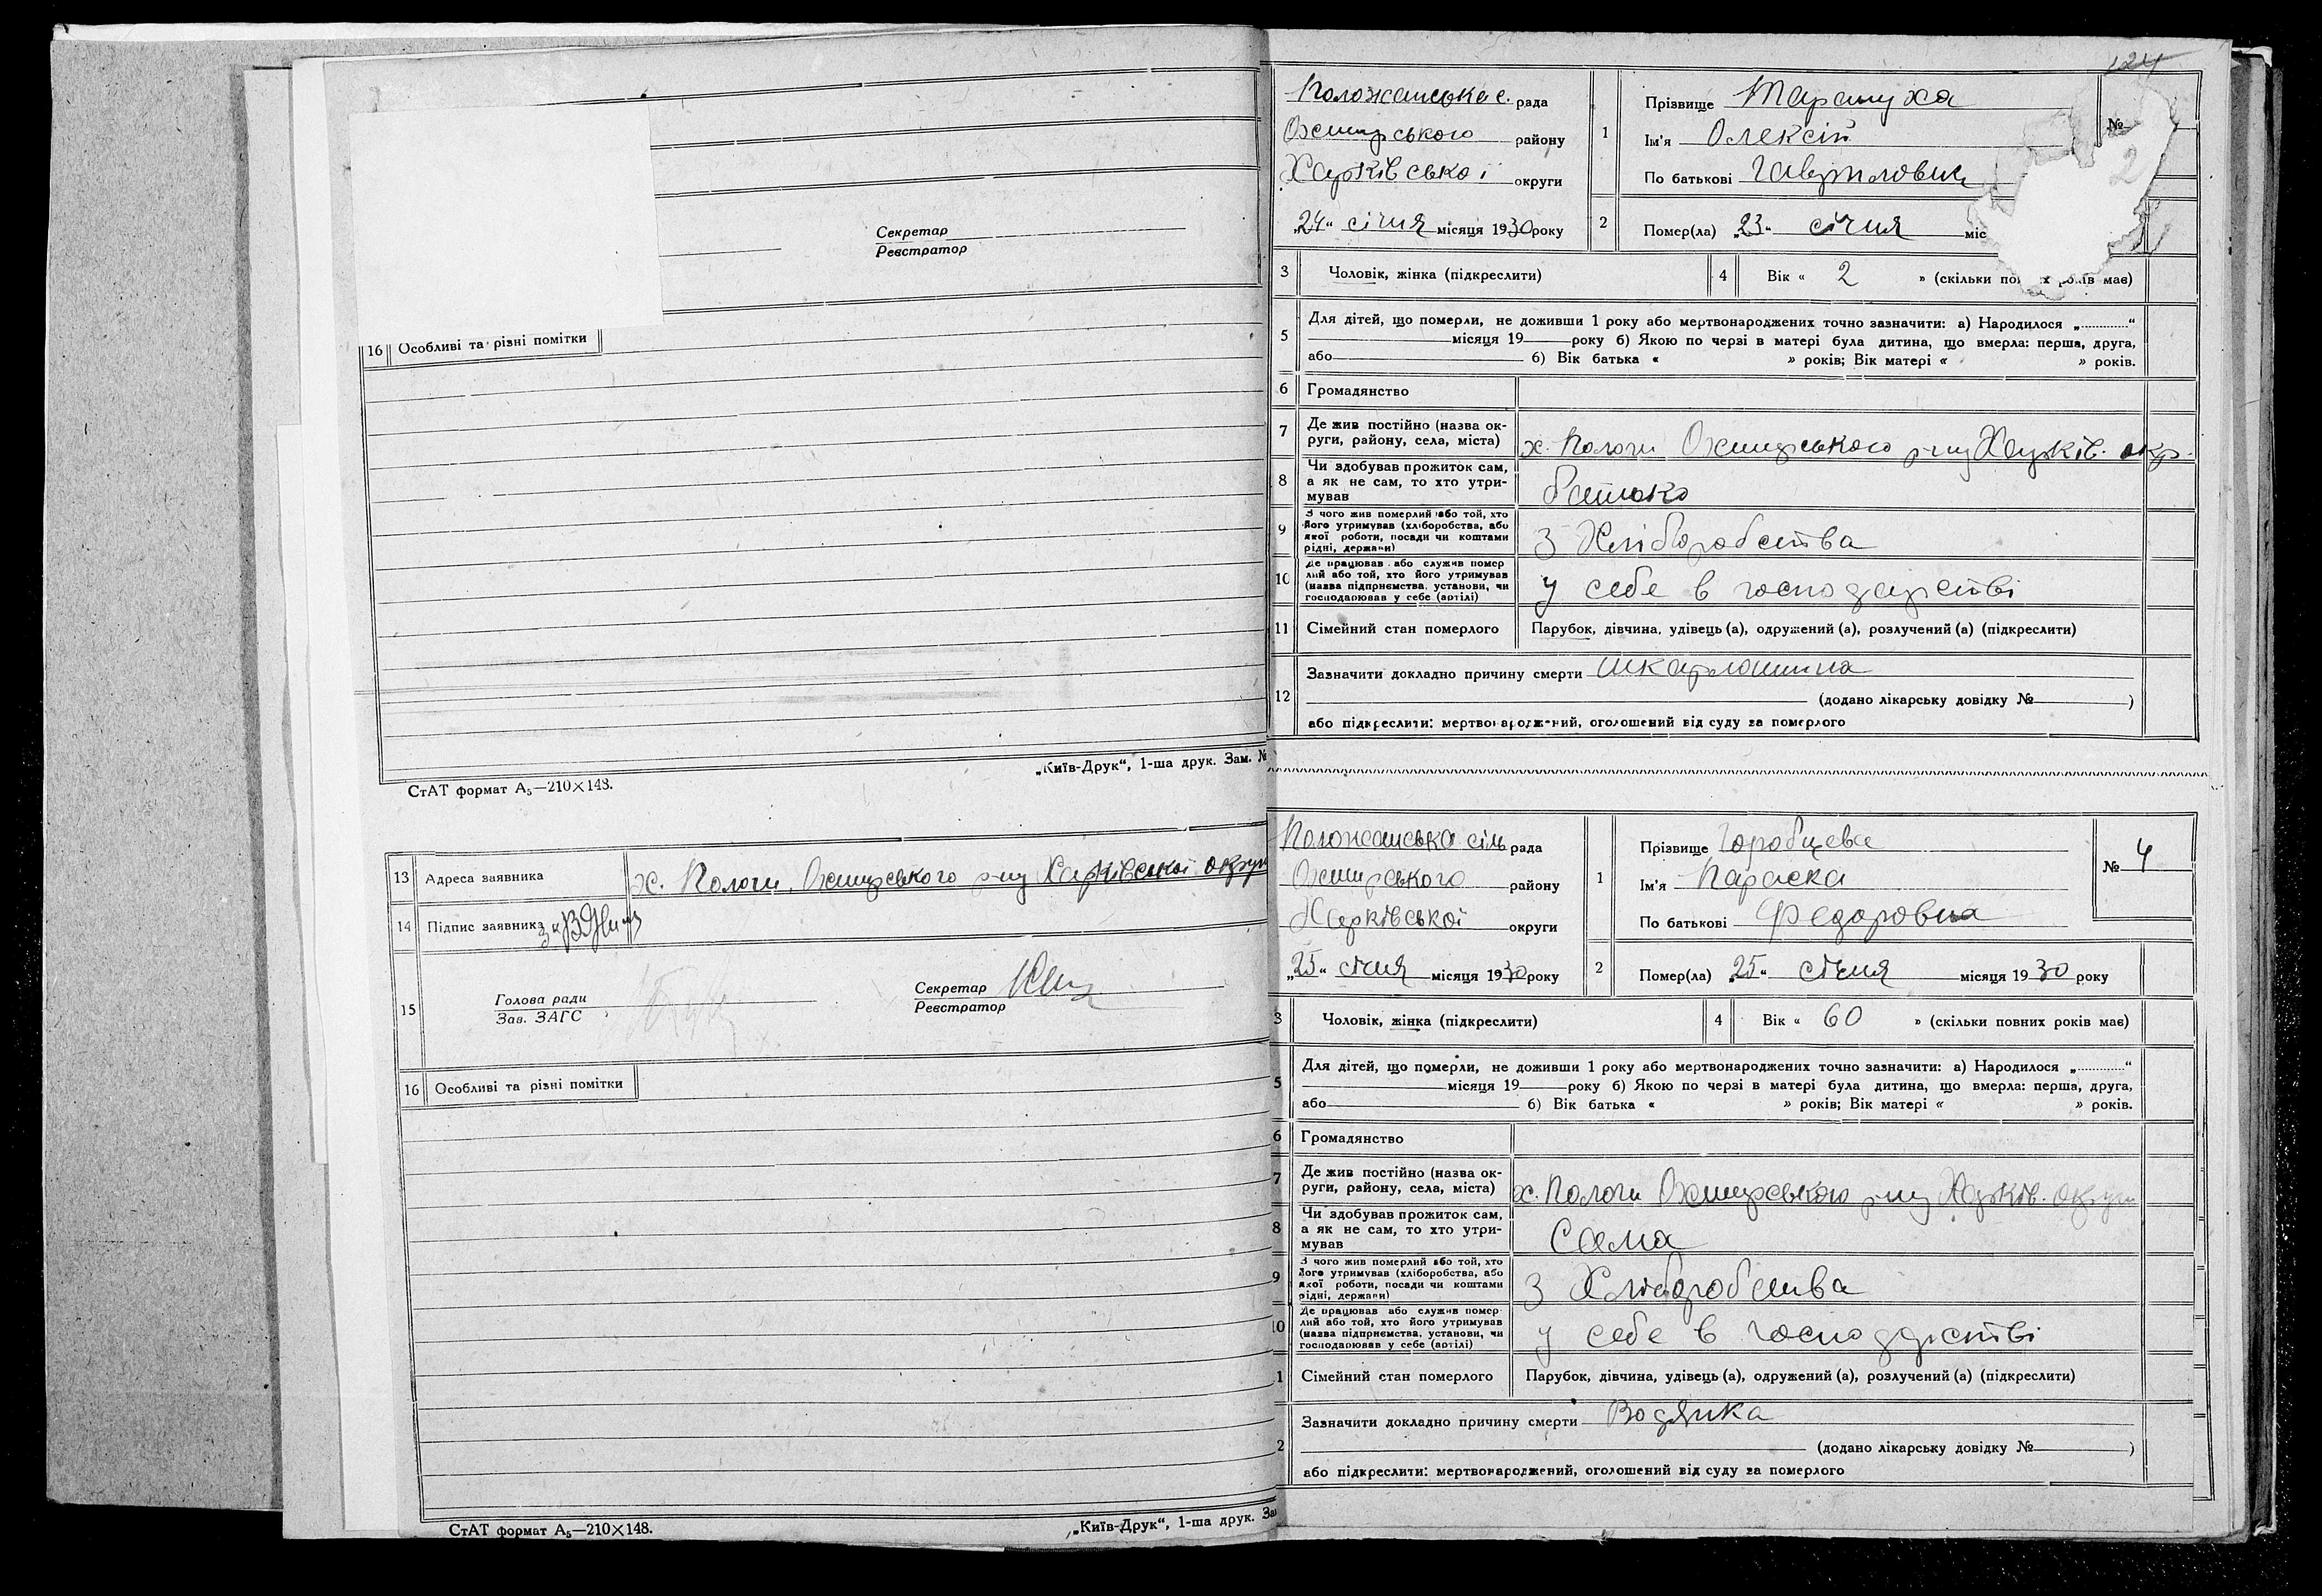 Секретар
Реєстратор
16 Особливі та різні помітки
„Київ-Друк“, 1-ша друк. Зам. №
СтАТ формат А₅—210×148.
13 Адреса заявника х. Пологи Охтирського р-ну Харківської округи
14 Підпис заявника
15 Голова ради
Зав. ЗАГС
Секретар
Реєстратор
16 Особливі та різні помітки
СтАТ формат А₅—210×148.
„Київ-Друк“, 1-ша друк. За
124
Положанська с. рада
Охтирського району
Харківської округи
„24“ січня місяця 1930 року
1 Прізвище Тарануха
Ім'я Олексій
По батькові Гаврилович
№
2
2 Помер(ла) „23“ січня міс
3 Чоловік, жінка (підкреслити)
4 Вік « 2 » (скільки повних років має)
5 Для дітей, що померли, не доживши 1 року або мертвонароджених точно зазначити: а) Народилося „............“
місяця 19 року б) Якою по черзі в матері була дитина, що вмерла: перша, друга,
або 6) Вік батька « » років; Вік матері « » років.
6 Громадянство
7 Де жив постійно (назва ок-
руги, району, села, міста) х. Пологи Охтирського р-ну Харків. окр.
8 Чи здобував прожиток сам,
а як не сам, то хто утри-
мував батько
9 З чого жив померлий або той, хто
його утримував (хліборобства, або
якої роботи, посади чи коштами
рідні, держави) З Хліборобства
10 Де працював або служив помер
лий або той, хто його утримував
(назва підприємства, установи, чи
господарював у себе (артілі) у себе в господарстві
11 Сімейний стан померлого Парубок, дівчина, удівець (а), одружений (а), розлучений (а) (підкреслити)
12 Зазначити докладно причину смерти шкарлатина
(додано лікарську довідку № )
або підкреслити: мертвонароджений, оголошений від суду за померлого
Положанська сіль рада
Охтирського району
Харківської округи
„25“ січня місяця 1930 року
1 Прізвище Горобцева
Ім'я Параска
По батькові Федоровна
№ 4
2 Помер(ла) „25“ січня місяця 1930 року
3 Чоловік, жінка (підкреслити)
4 Вік « 60 » (скільки повних років має)
5 Для дітей, що померли, не доживши 1 року або мертвонароджених точно зазначити: а) Народилося „............“
місяця 19 року б) Якою по черзі в матері була дитина, що вмерла: перша, друга,
або 6) Вік батька « » років; Вік матері « » років.
6 Громадянство
7 Де жив постійно (назва ок-
руги, району, села, міста) х. Пологи Охтирського р-ну Харків. округи
8 Чи здобував прожиток сам,
а як не сам, то хто утри-
мував Сама
9 З чого жив померлий або той, хто
його утримував (хліборобства, або
якої роботи, посади чи коштами
рідні, держави) З Хліборобства
10 Де працював або служив помер-
лий або той, хто його утримував
(назва підприємства, установи, чи
господарював у себе (артілі) у себе в господарстві
1 Сімейний стан померлого Парубок, дівчина, удівець (а), одружений (а), розлучений (а) (підкреслити)
2 Зазначити докладно причину смерти Водянка
(додано лікарську довідку № )
або підкреслити: мертвонароджений, оголошений від суду за померлого